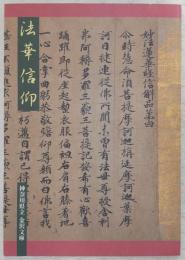 妙法蓮華經信解品第四
尒時慧命須菩提摩訶迦旃延摩訶迦葉
訶目揵連從佛所聞未曾有法世尊授舍利
弗阿耨多羅三藐三菩提記發希有心歡喜
踊躍即從座起整衣服偏袒右肩右膝著地
一心合掌曲躬恭敬瞻仰尊顏而白佛言我
朽邁自謂已得
法華信仰
神奈川県立 金沢文庫